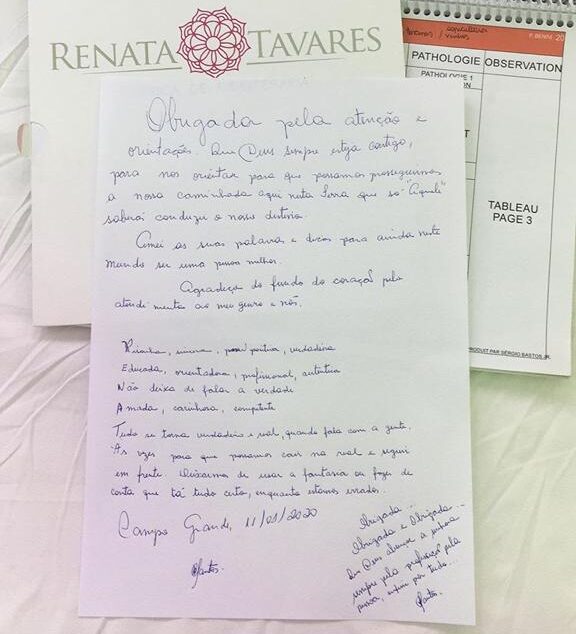 RENATA TAVARES
P. BENNI. 20
PATHOLOGIE OBSERVATION
PATHOLOGIE 1
TABLEAU
PAGE 3
PRODUIT PAR SÉRGIO BASTOS JR.
Obrigada pela atenção e
orientações. Que Deus sempre esteja contigo,
para nos orientar para que possamos prosseguirmos
a nossa caminhada aqui nesta Terra que só "Aquele"
saberá conduzir o nosso destino.
Amei as suas palavras e dicas para ainda neste
mundo ser uma pessoa melhor.
Agradeço do fundo do coração pelo
atendimento ao meu genro e nós.
Risonha, sincera, positiva, verdadeira
Educada, orientadora, profissional, autêntica
Não deixa de falar a verdade
Amada, carinhosa, competente
Tudo se torna verdadeiro e real, quando fala com a gente.
Às vezes para que possamos cair na real e seguir
em frente. Deixarmos de usar a fantasia ou fazer de
conta que tá tudo certo, enquanto estamos errados.
Campo Grande, 11/01/2020
Santos.
Obrigada...
Obrigada e Obrigada...
Que Deus abençoe a senhora
sempre pela profissão, pela
pessoa, enfim por tudo...
Santos.